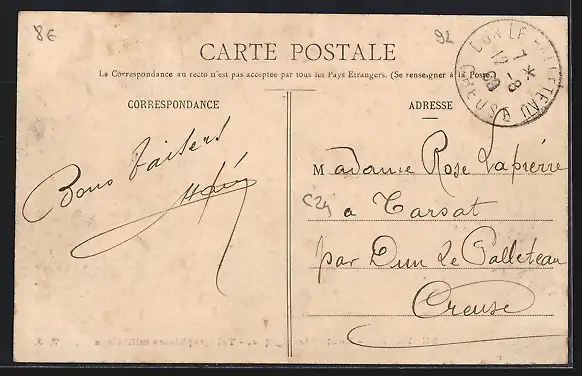 8€
92
CARTE POSTALE
La Correspondance au recto n'est pas acceptée par tous les Pays Etrangers. (Se renseigner à la Poste)
DUN LE PALLETEAU
7 *
12 -8
08
CREUSE
CORRESPONDANCE
ADRESSE
Bons baisers
Madame Rose Lapierre
C24
a Tarsat
par Dun Le Palleteau
Creuse